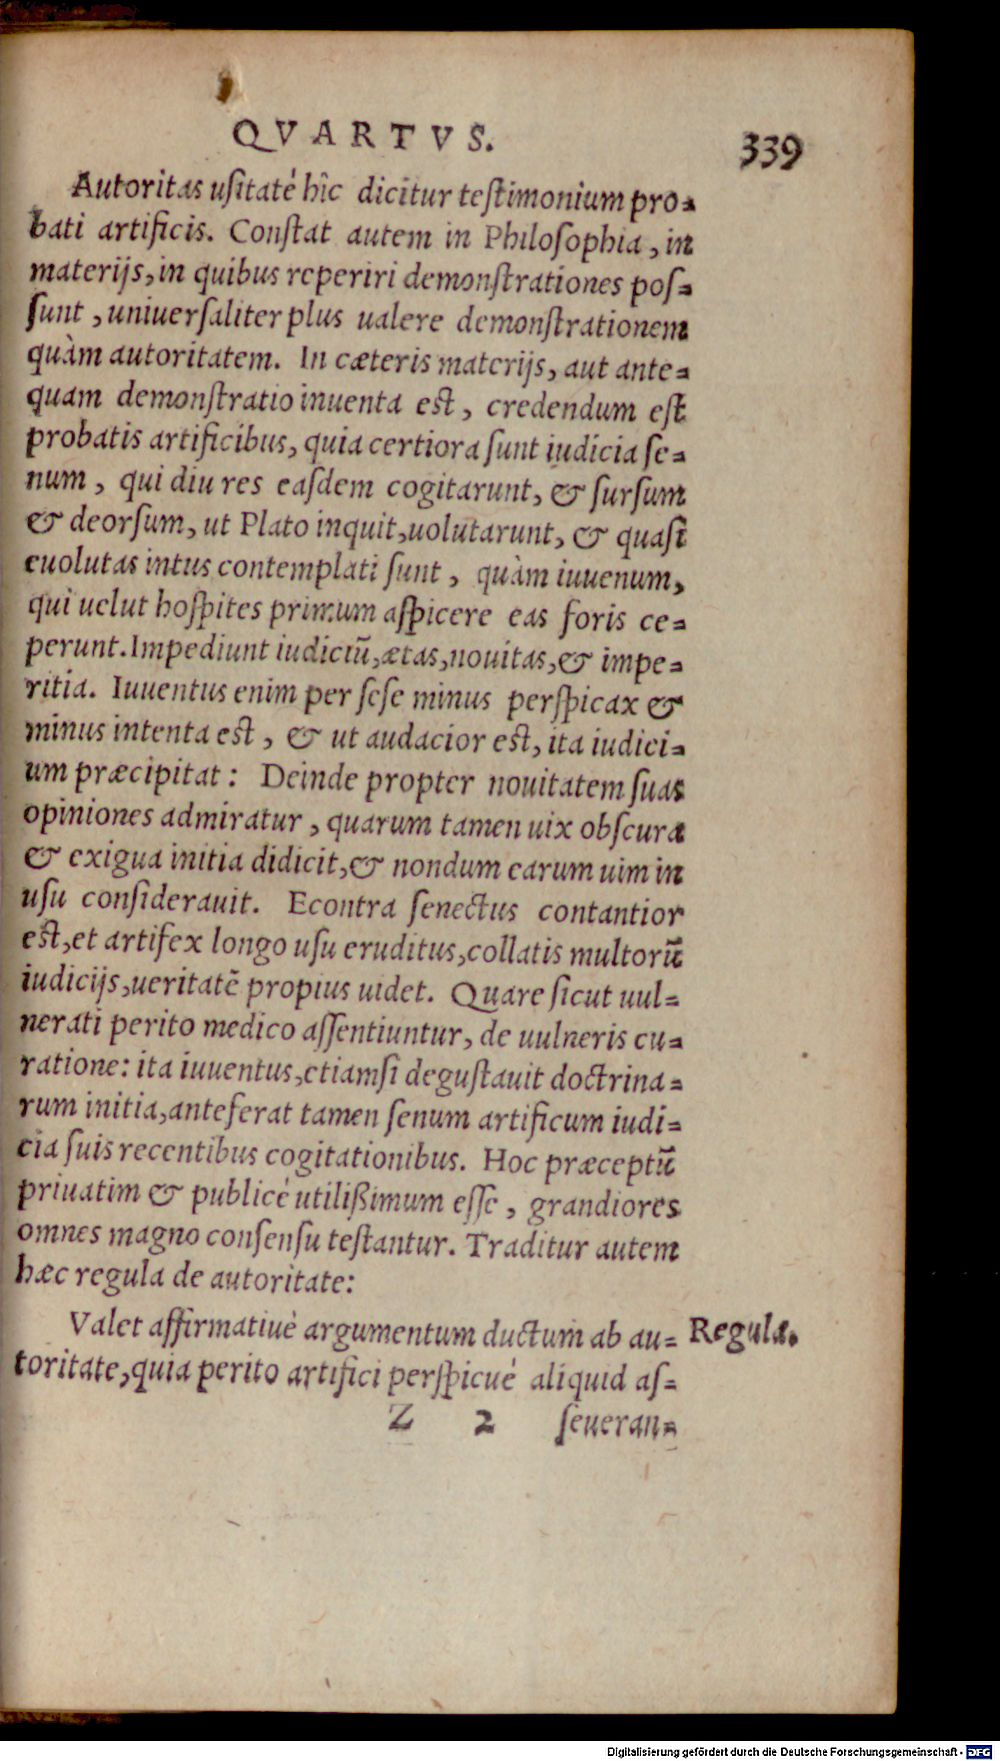 QVARTVS. 339
Autoritas uſitaté hîc dicitur teſtimonium pro-
bati artificis. Conſtat autem in Philoſophia, in
materijs, in quibus reperiri demonſtrationes poſ-
ſunt, uniuerſaliter plus ualere demonſtrationem
quàm autoritatem. In cæteris materijs, aut ante-
quam demonſtratio inuenta eſt, credendum eſt
probatis artificibus, quia certiora ſunt iudicia ſe-
num, qui diu res eaſdem cogitarunt, & ſurſum
& deorſum, ut Plato inquit, uolutarunt, & quaſi
euolutas intus contemplati ſunt, quàm iuuenum,
qui uelut hoſpites primum aſpicere eas foris ce-
perunt. Impediunt iudiciū, ætas, nouitas, & impe-
ritia. Iuuentus enim per ſeſe minus perſpicax &
minus intenta eſt, & ut audacior eſt, ita iudici-
um præcipitat: Deinde propter nouitatem ſuas
opiniones admiratur, quarum tamen uix obſcura
& exigua initia didicit, & nondum earum uim in
uſu conſiderauit. Econtra ſenectus contantior
eſt, et artifex longo uſu eruditus, collatis multorū
iudicijs, ueritatē propius uidet. Quare ſicut uul-
nerati perito medico aſſentiuntur, de uulneris cu-
ratione: ita iuuentus, etiamſi deguſtauit doctrina-
rum initia, anteferat tamen ſenum artificum iudi-
cia ſuis recentibus cogitationibus. Hoc præceptū
priuatim & publicé utilißimum eſſe, grandiores
omnes magno conſenſu teſtantur. Traditur autem
hæc regula de autoritate:
Valet affirmatiuè argumentum ductum ab au- Regulæ.
toritate, quia perito artifici perſpicué aliquid aſ-
Z 2 ſeueran-
Digitalisierung gefördert durch die Deutsche Forschungsgemeinschaft - DFG